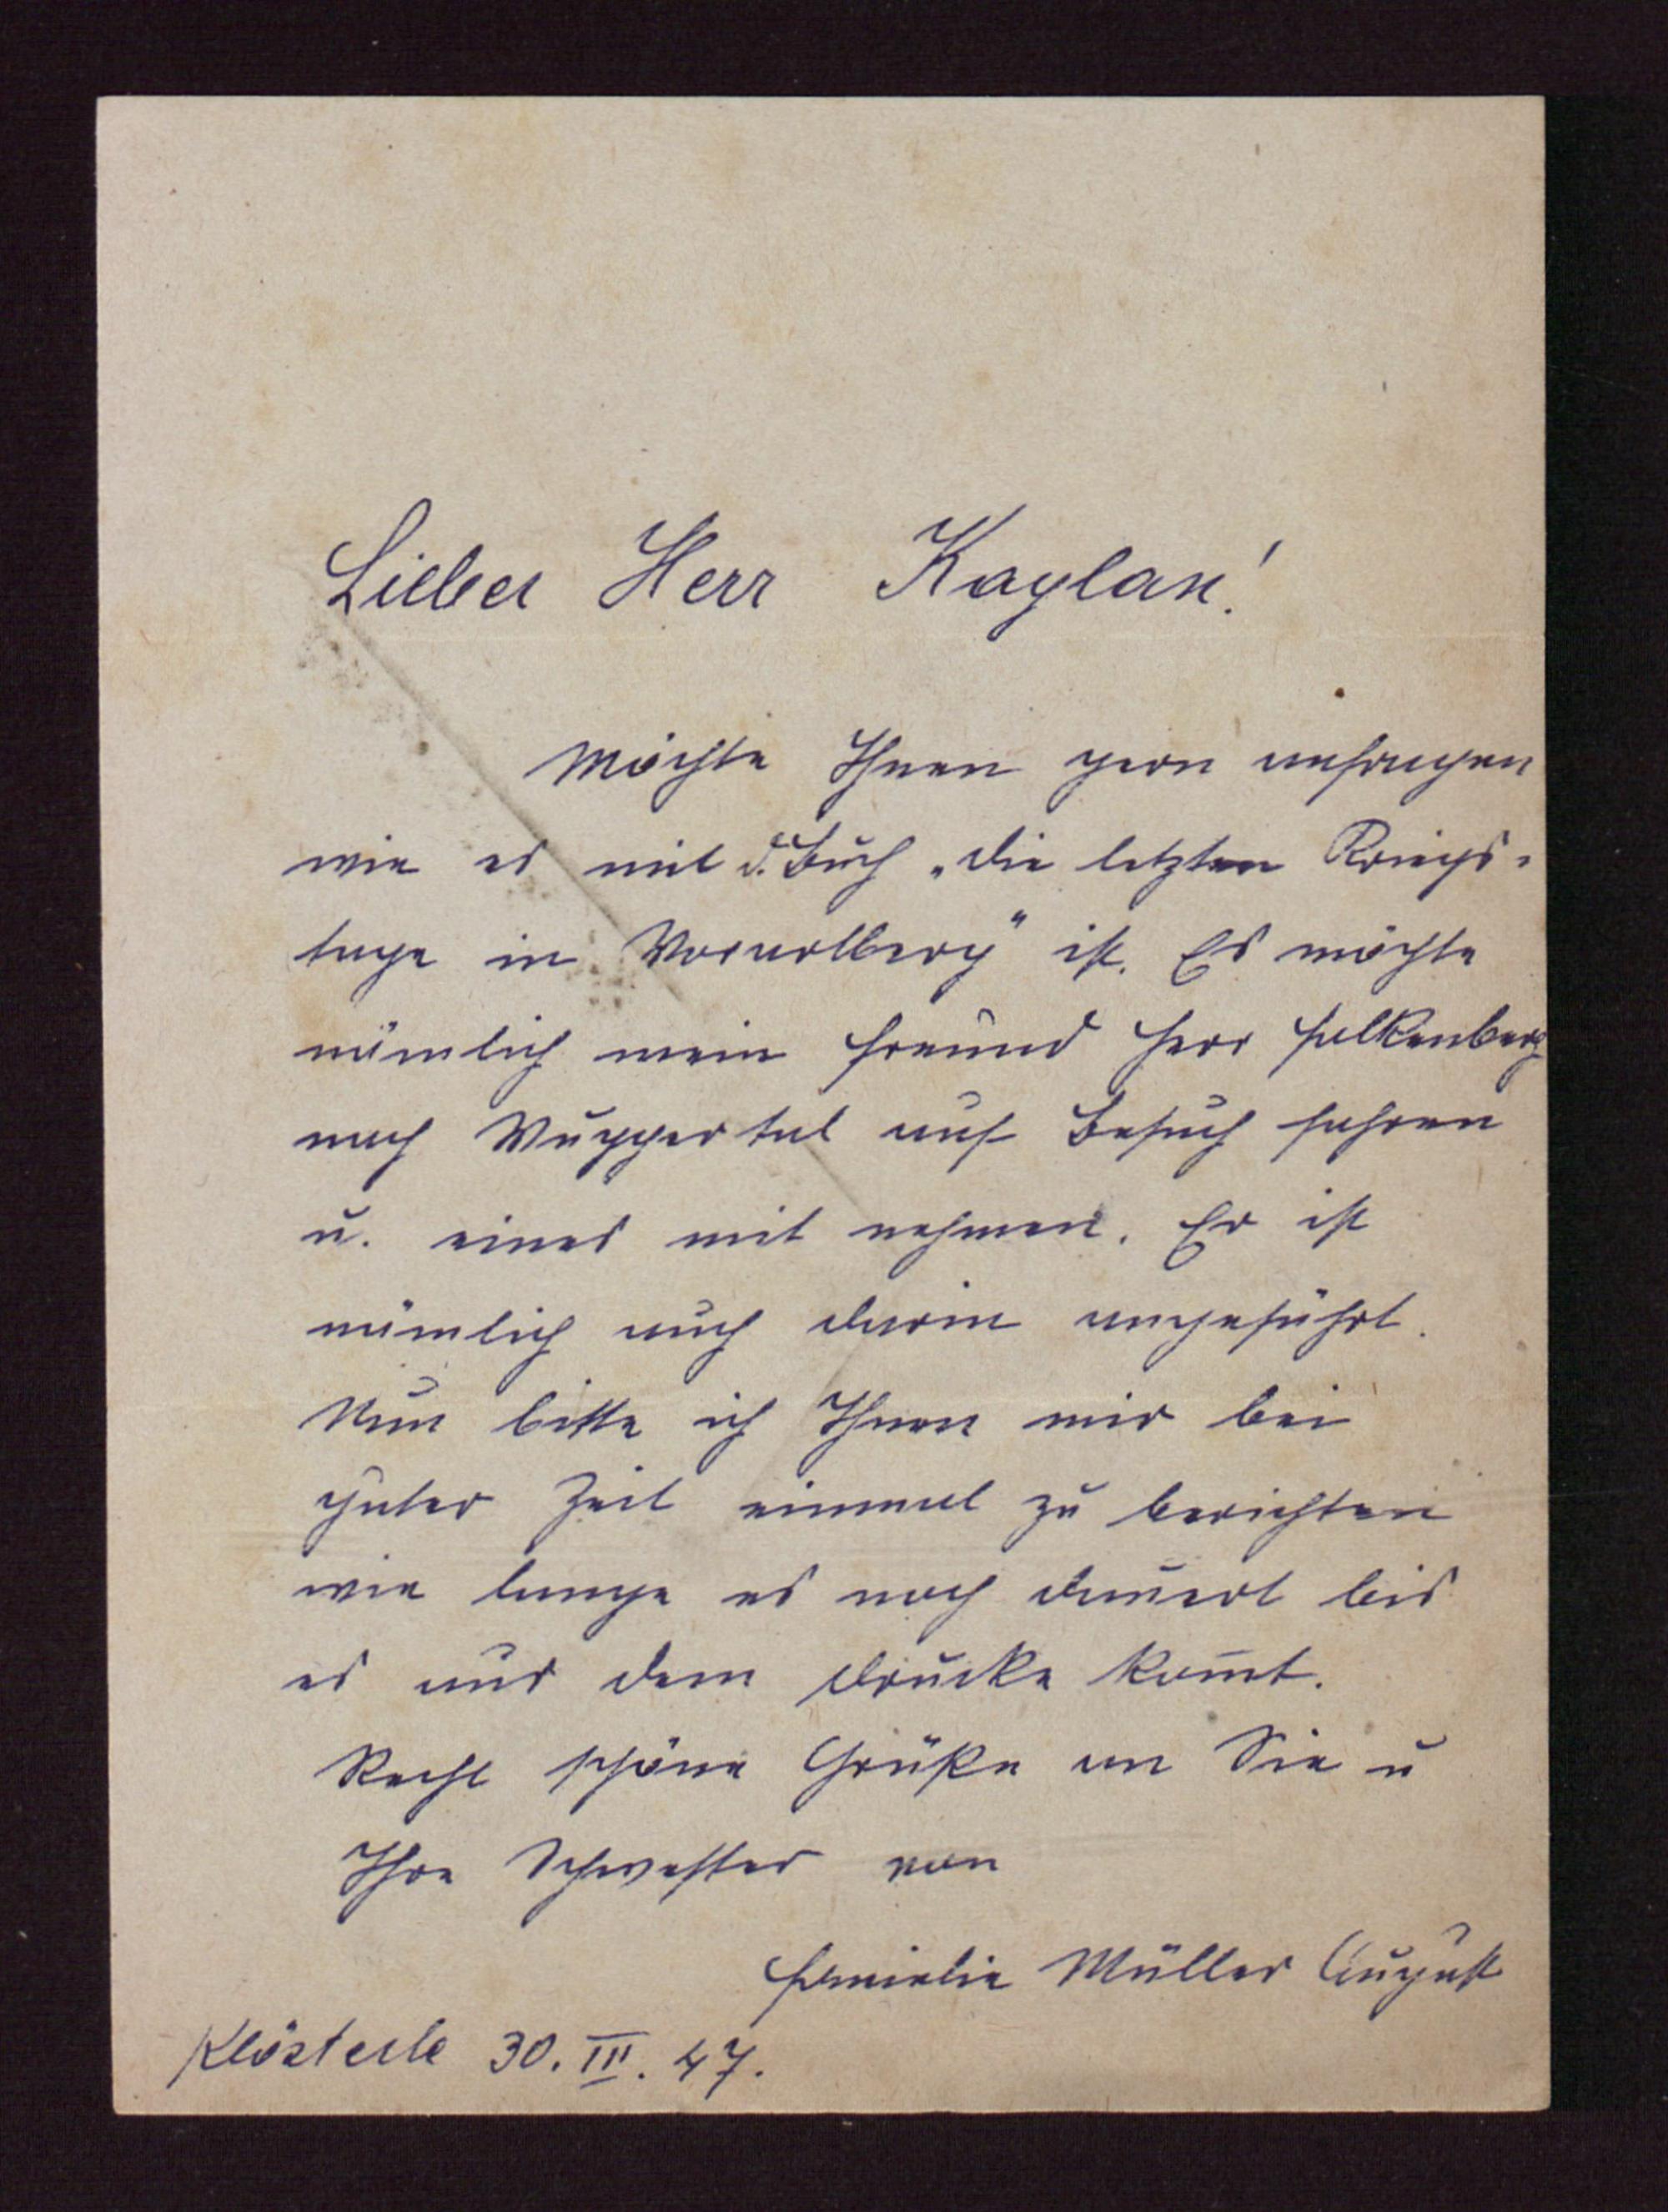 Lieber Herr Kaplan!
Möchte Ihnen gern anfragen
wie es mit d. Buch „die letzten Kriegs-
tage in Vorarlberg" ist. Es möchte
nämlich mein Freund Herr Falkenberg
nach Wuppertal auf Besuch fahren
u. eines mit nehmen. Er ist
nämlich auch darin angeführt.
Nun bitte ich Ihnen mir bei
guter Zeit einmal zu berichten
wie lange es noch dauert bis
es aus dem Drucke kom̄t.
Recht schöne Grüße an Sie u
Ihre Schwester von
Familie Müller August
Klösterle 30. III. 47.